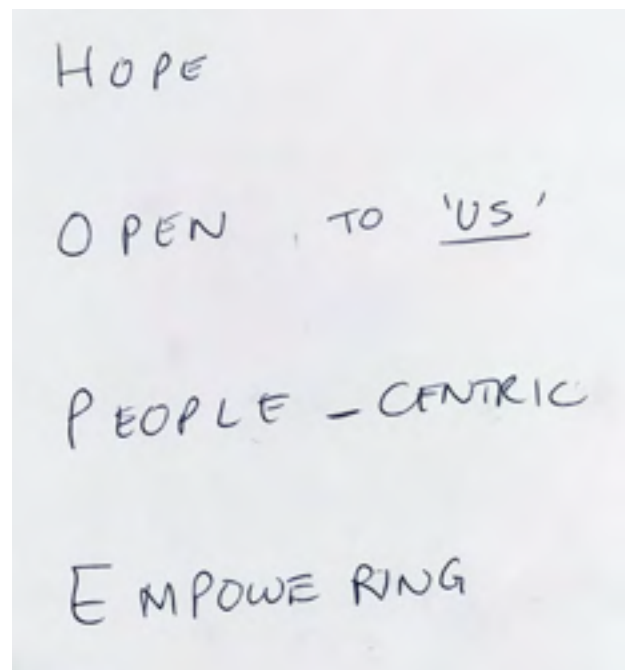 HOPE
OPEN TO 'US'
PEOPLE-CENTRIC
EMPOWERING